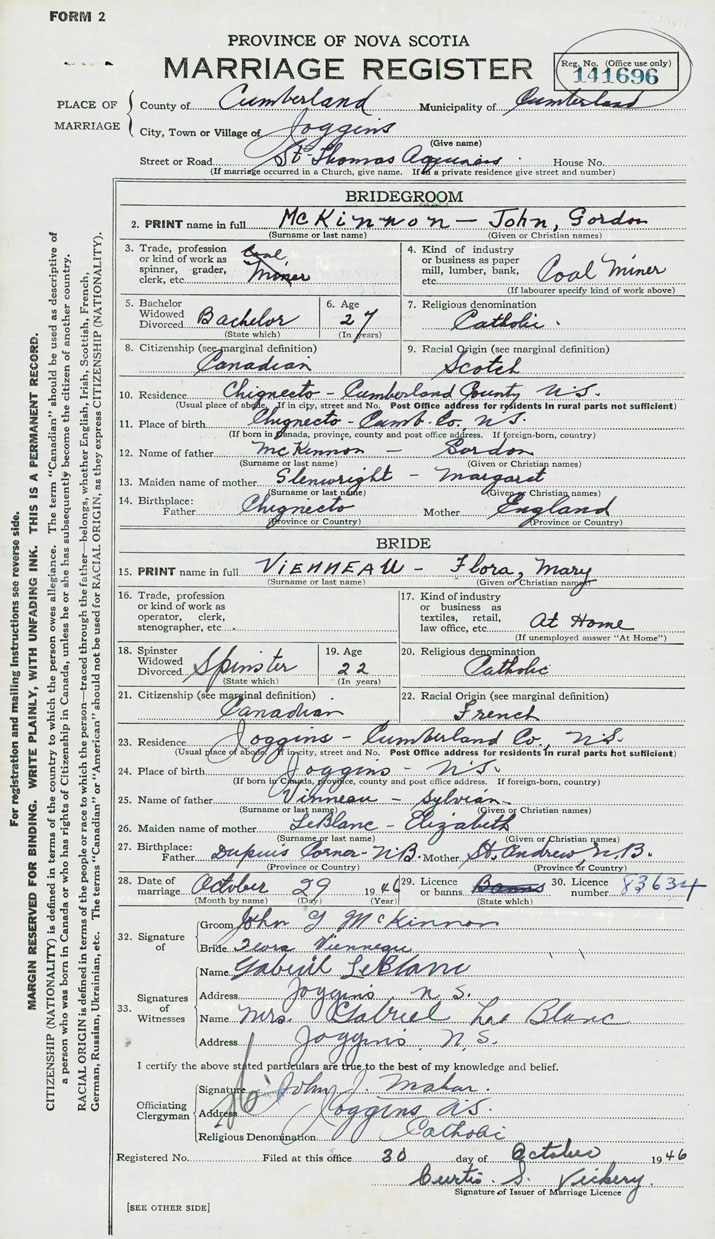 FORM 2
PROVINCE OF NOVA SCOTIA
MARRIAGE REGISTER
Reg. No. (Office use only)
141696
PLACE OF MARRIAGE
County of Cumberland Municipality of Cumberland
City, Town or Village of Joggins
(Give name)
Street or Road St Thomas House No.
(If marriage occurred in a Church, give name. If in a private residence give street and number)
BRIDEGROOM
2. PRINT name in full McKinnon – John, Gordon
(Surname or last name) (Given or Christian names)
3. Trade, profession or kind of work as spinner, grader, clerk, etc. Coal Miner
4. Kind of industry or business as paper mill, lumber, bank, etc. Coal Miner
(If labourer specify kind of work above)
5. Bachelor Widowed Divorced Bachelor
(State which)
6. Age 27
(In years)
7. Religious denomination Catholic.
8. Citizenship (see marginal definition) Canadian
9. Racial Origin (see marginal definition) Scotch
10. Residence Chignecto – Cumberland County N.S.
(Usual place of abode. If in city, street and No. Post Office address for residents in rural parts not sufficient)
11. Place of birth Chignecto – Cumb. Co., N.S.
(If born in Canada, province, county and post office address. If foreign-born, country)
12. Name of father McKinnon – Gordon
(Surname or last name) (Given or Christian names)
13. Maiden name of mother Glenwright – Margaret
(Surname or last name) (Given or Christian names)
14. Birthplace: Father Chignecto Mother England
(Province or Country) (Province or Country)
BRIDE
15. PRINT name in full VIENNEAU – Flora, Mary
(Surname or last name) (Given or Christian names)
16. Trade, profession or kind of work as operator, clerk, stenographer, etc.
17. Kind of industry or business as textiles, retail, law office, etc. At Home
(If unemployed answer "At Home")
18. Spinster Widowed Divorced Spinster
(State which)
19. Age 22
(In years)
20. Religious denomination Catholic
21. Citizenship (see marginal definition) Canadian
22. Racial Origin (see marginal definition) French
23. Residence Joggins – Cumberland Co., N.S.
(Usual place of abode. If in city, street and No. Post Office address for residents in rural parts not sufficient)
24. Place of birth Joggins – N.S.
(If born in Canada, province, county and post office address. If foreign-born, country)
25. Name of father Vinneau – Sylvian
(Surname or last name) (Given or Christian names)
26. Maiden name of mother LeBlanc – Elizabeth
(Surname or last name) (Given or Christian names)
27. Birthplace: Father Dupuis Corner N.B. Mother St. Andrew, N.B.
(Province or Country) (Province or Country)
28. Date of marriage October 29 1946
(Month by name) (Day) (Year)
29. Licence or banns Banns
(State which)
30. Licence number 83634
32. Signature of
Groom John G McKinnon
Bride Flora Vienneau
33. Signatures of Witnesses
Name Gabriel LeBlanc
Address Joggins N.S.
Name Mrs. Gabriel Lee Blanc
Address Joggins, N.S.
I certify the above stated particulars are true to the best of my knowledge and belief.
Officiating Clergyman
Signature John J. Mahar.
Address Joggins N.S.
Religious Denomination Catholic
Registered No. Filed at this office 30 day of October 1946
Curtis S. Vickery
Signature of Issuer of Marriage Licence
[SEE OTHER SIDE]
For registration and mailing instructions see reverse side.
MARGIN RESERVED FOR BINDING. WRITE PLAINLY, WITH UNFADING INK. THIS IS A PERMANENT RECORD.
CITIZENSHIP (NATIONALITY) is defined in terms of the country to which the person owes allegiance. The term "Canadian" should be used as descriptive of
a person who was born in Canada or who has rights of Citizenship in Canada, unless he or she has subsequently become the citizen of another country.
RACIAL ORIGIN is defined in terms of the people or race to which the person—traced through the father—belongs, whether English, Irish, Scottish, French,
German, Russian, Ukrainian, etc. The terms "Canadian" or "American" should not be used for RACIAL ORIGIN, as they express CITIZENSHIP (NATIONALITY).